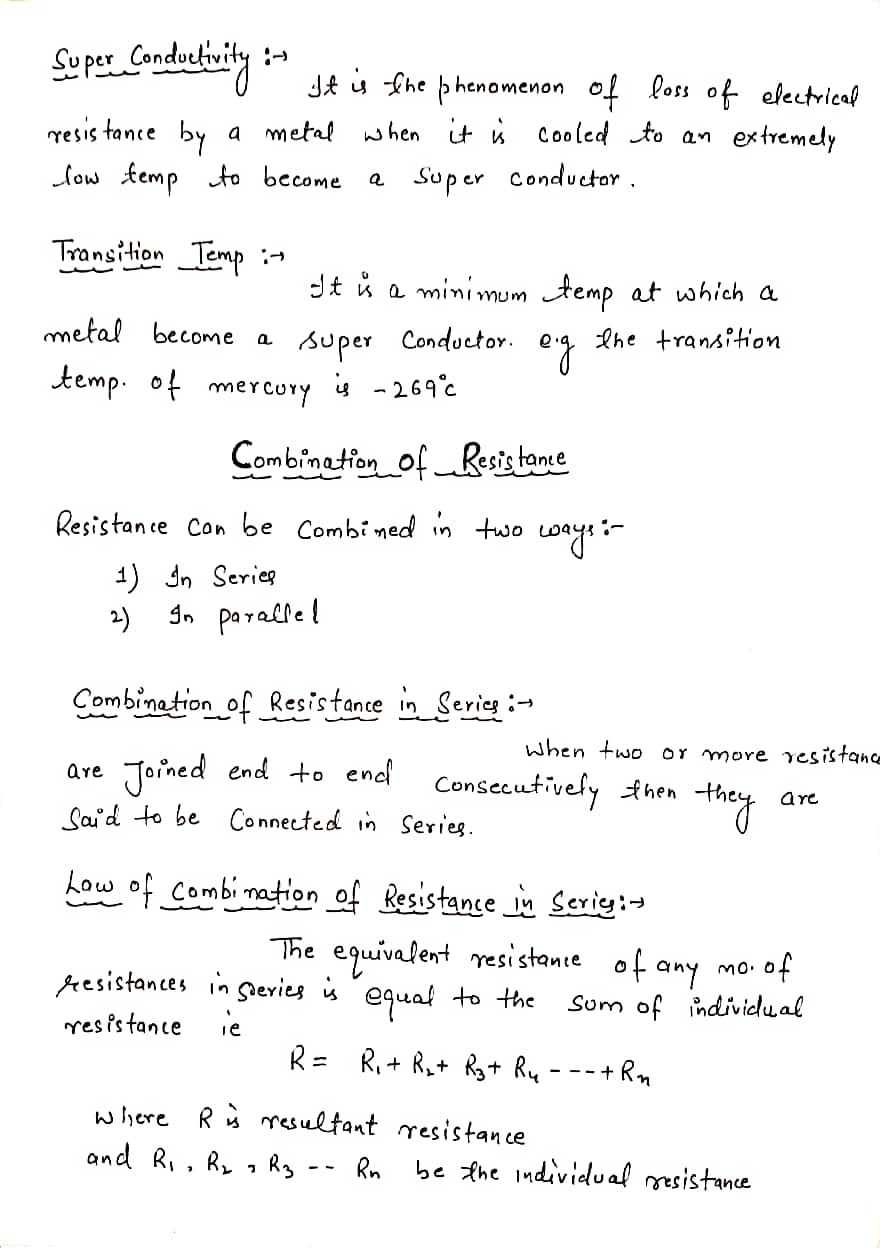 Super Conductivity :→
It is the phenomenon of loss of electrical
resistance by a metal when it is cooled to an extremely
low temp to become a Super conductor.
Transition Temp :→
It is a minimum temp at which a
metal become a super Conductor. e.g the transition
temp. of mercury is -269°c
Combination of Resistance
Resistance Can be Combined in two ways :-
1) In Series
2) In parallel
Combination of Resistance in Series :→
When two or more resistanc
are Joined end to end Consecutively then they are
Said to be Connected in Series.
Law of Combination of Resistance in Series :→
The equivalent resistance of any no. of
resistances in series is equal to the sum of individual
resistance ie
R = R₁ + R₂ + R₃ + R₄ - - - + Rn
where R is resultant resistance
and R₁ , R₂ , R₃ -- Rn be the individual resistance